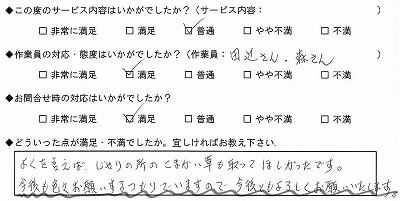 ◆この度のサービス内容はいかがでしたか？（サービス内容：　　　　　）
□ 非常に満足　□ 満足　☑ 普通　□ やや不満　□ 不満
◆作業員の対応・態度はいかがでしたか？（作業員：田辺さん．森さん　）
□ 非常に満足　☑ 満足　□ 普通　□ やや不満　□ 不満
◆お問合せ時の対応はいかがでしたか？
□ 非常に満足　☑ 満足　□ 普通　□ やや不満　□ 不満
◆どういった点が満足・不満でしたか。宜しければお教え下さい．
よくを言えば、じゃりの所のこまかい草も取ってほしかったです。
今後も色々お願いするつもりでいますので、今後ともよろしくお願いいたします。